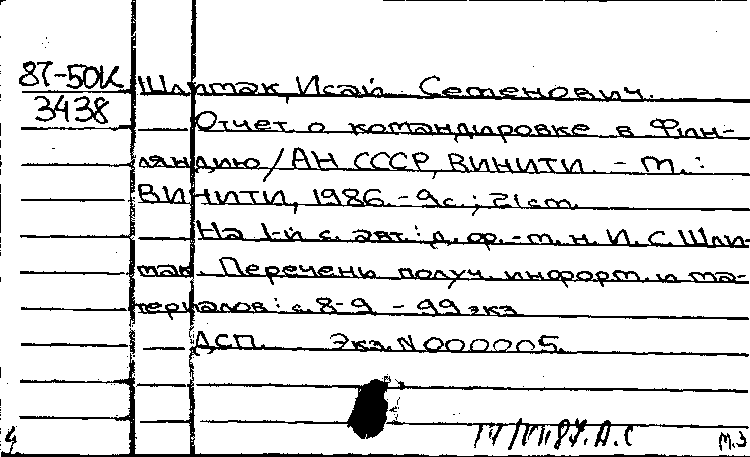 87-50К
3438
Шлитак, Исай Семенович.
Отчет о командировке в Фин-
ляндию / АН СССР, ВИНИТИ. - М.:
ВИНИТИ, 1986. - 9с.; 21см.
На 1-й с. авт.: д. ф.-м. н. И. С. Шли-
так. Перечень получ. информ. и ма-
териалов: с. 8-9 - 99 экз
ДСП. Экз. N 000005.
4 IV/VII 87. А. С М.З